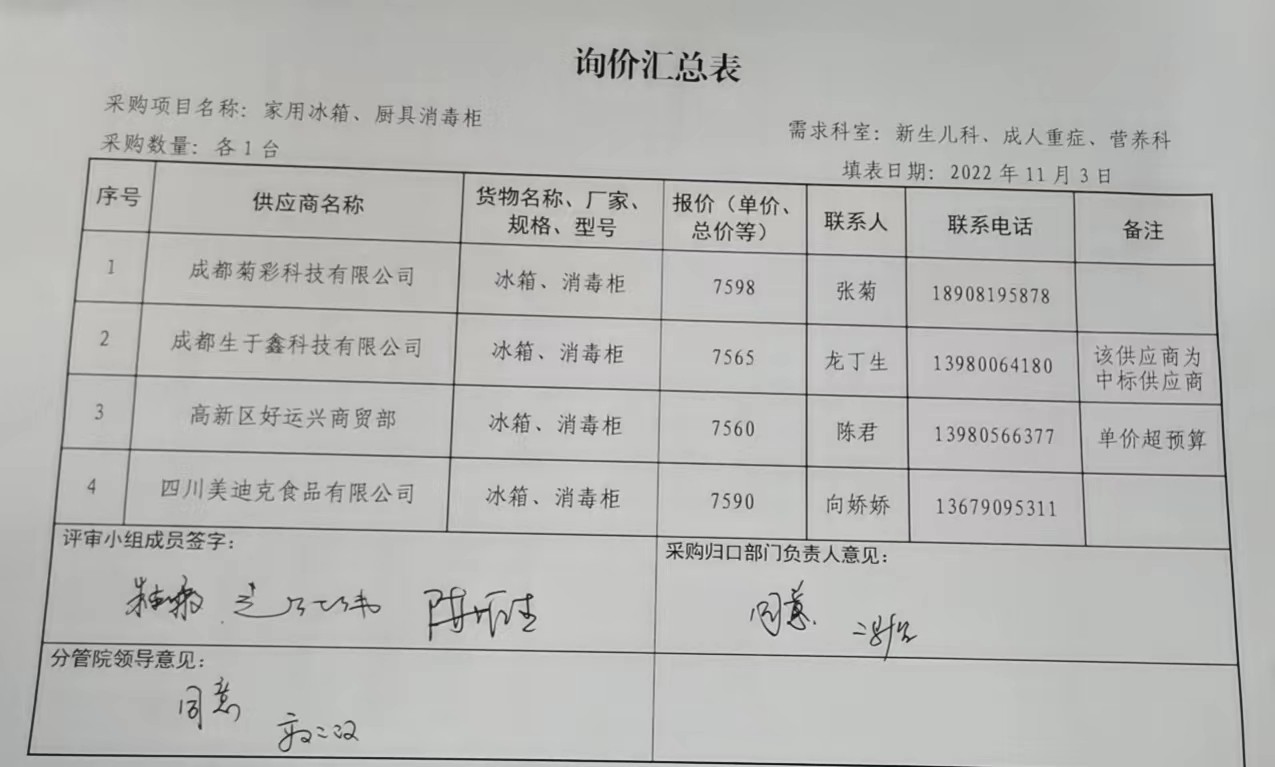 询价汇总表
采购项目名称：家用冰箱、厨具消毒柜
需求科室：新生儿科、成人重症、营养科
采购数量：各1台
填表日期：2022年11月3日
序号 供应商名称 货物名称、厂家、规格、型号 报价（单价、总价等） 联系人 联系电话 备注
1 成都菊彩科技有限公司 冰箱、消毒柜 7598 张菊 18908195878
2 成都生于鑫科技有限公司 冰箱、消毒柜 7565 龙丁生 13980064180 该供应商为中标供应商
3 高新区好运兴商贸部 冰箱、消毒柜 7560 陈君 13980566377 单价超预算
4 四川美迪克食品有限公司 冰箱、消毒柜 7590 向娇娇 13679095311
评审小组成员签字：
采购归口部门负责人意见：
同意
分管院领导意见：
同意